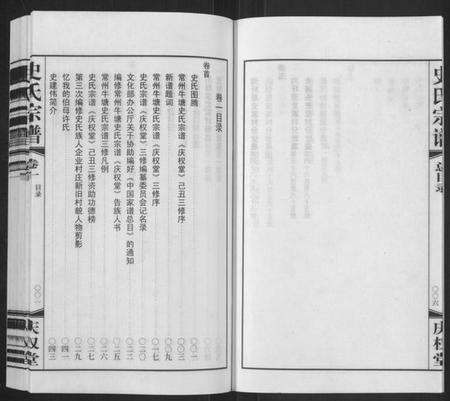 史氏宗谱
总目录
〇〇六
庆权堂
卷一目录
卷首
史氏图腾 〇〇一
常州牛塘史氏宗谱《庆权堂》己丑三修序 〇〇三
新谱题词 〇〇九
常州牛塘史氏宗谱《庆权堂》三修序 〇一七
史氏宗谱《庆权堂》三修编纂委员会记名录 〇二〇
文化部办公厅关于协助编好《中国家谱总目》的通知 〇二二
编修常州牛塘史氏宗谱《庆权堂》告族人书 〇二五
常州牛塘史氏宗谱三修凡例 〇二六
史氏宗谱《庆权堂》己丑三修资助功德榜 〇二七
第三次编修史氏族人企业村庄新旧村貌人物剪影 〇二九
忆我的伯母许氏 〇四一
史建伟简介 〇四三
史氏宗谱
卷一
目录
〇〇一
庆权堂